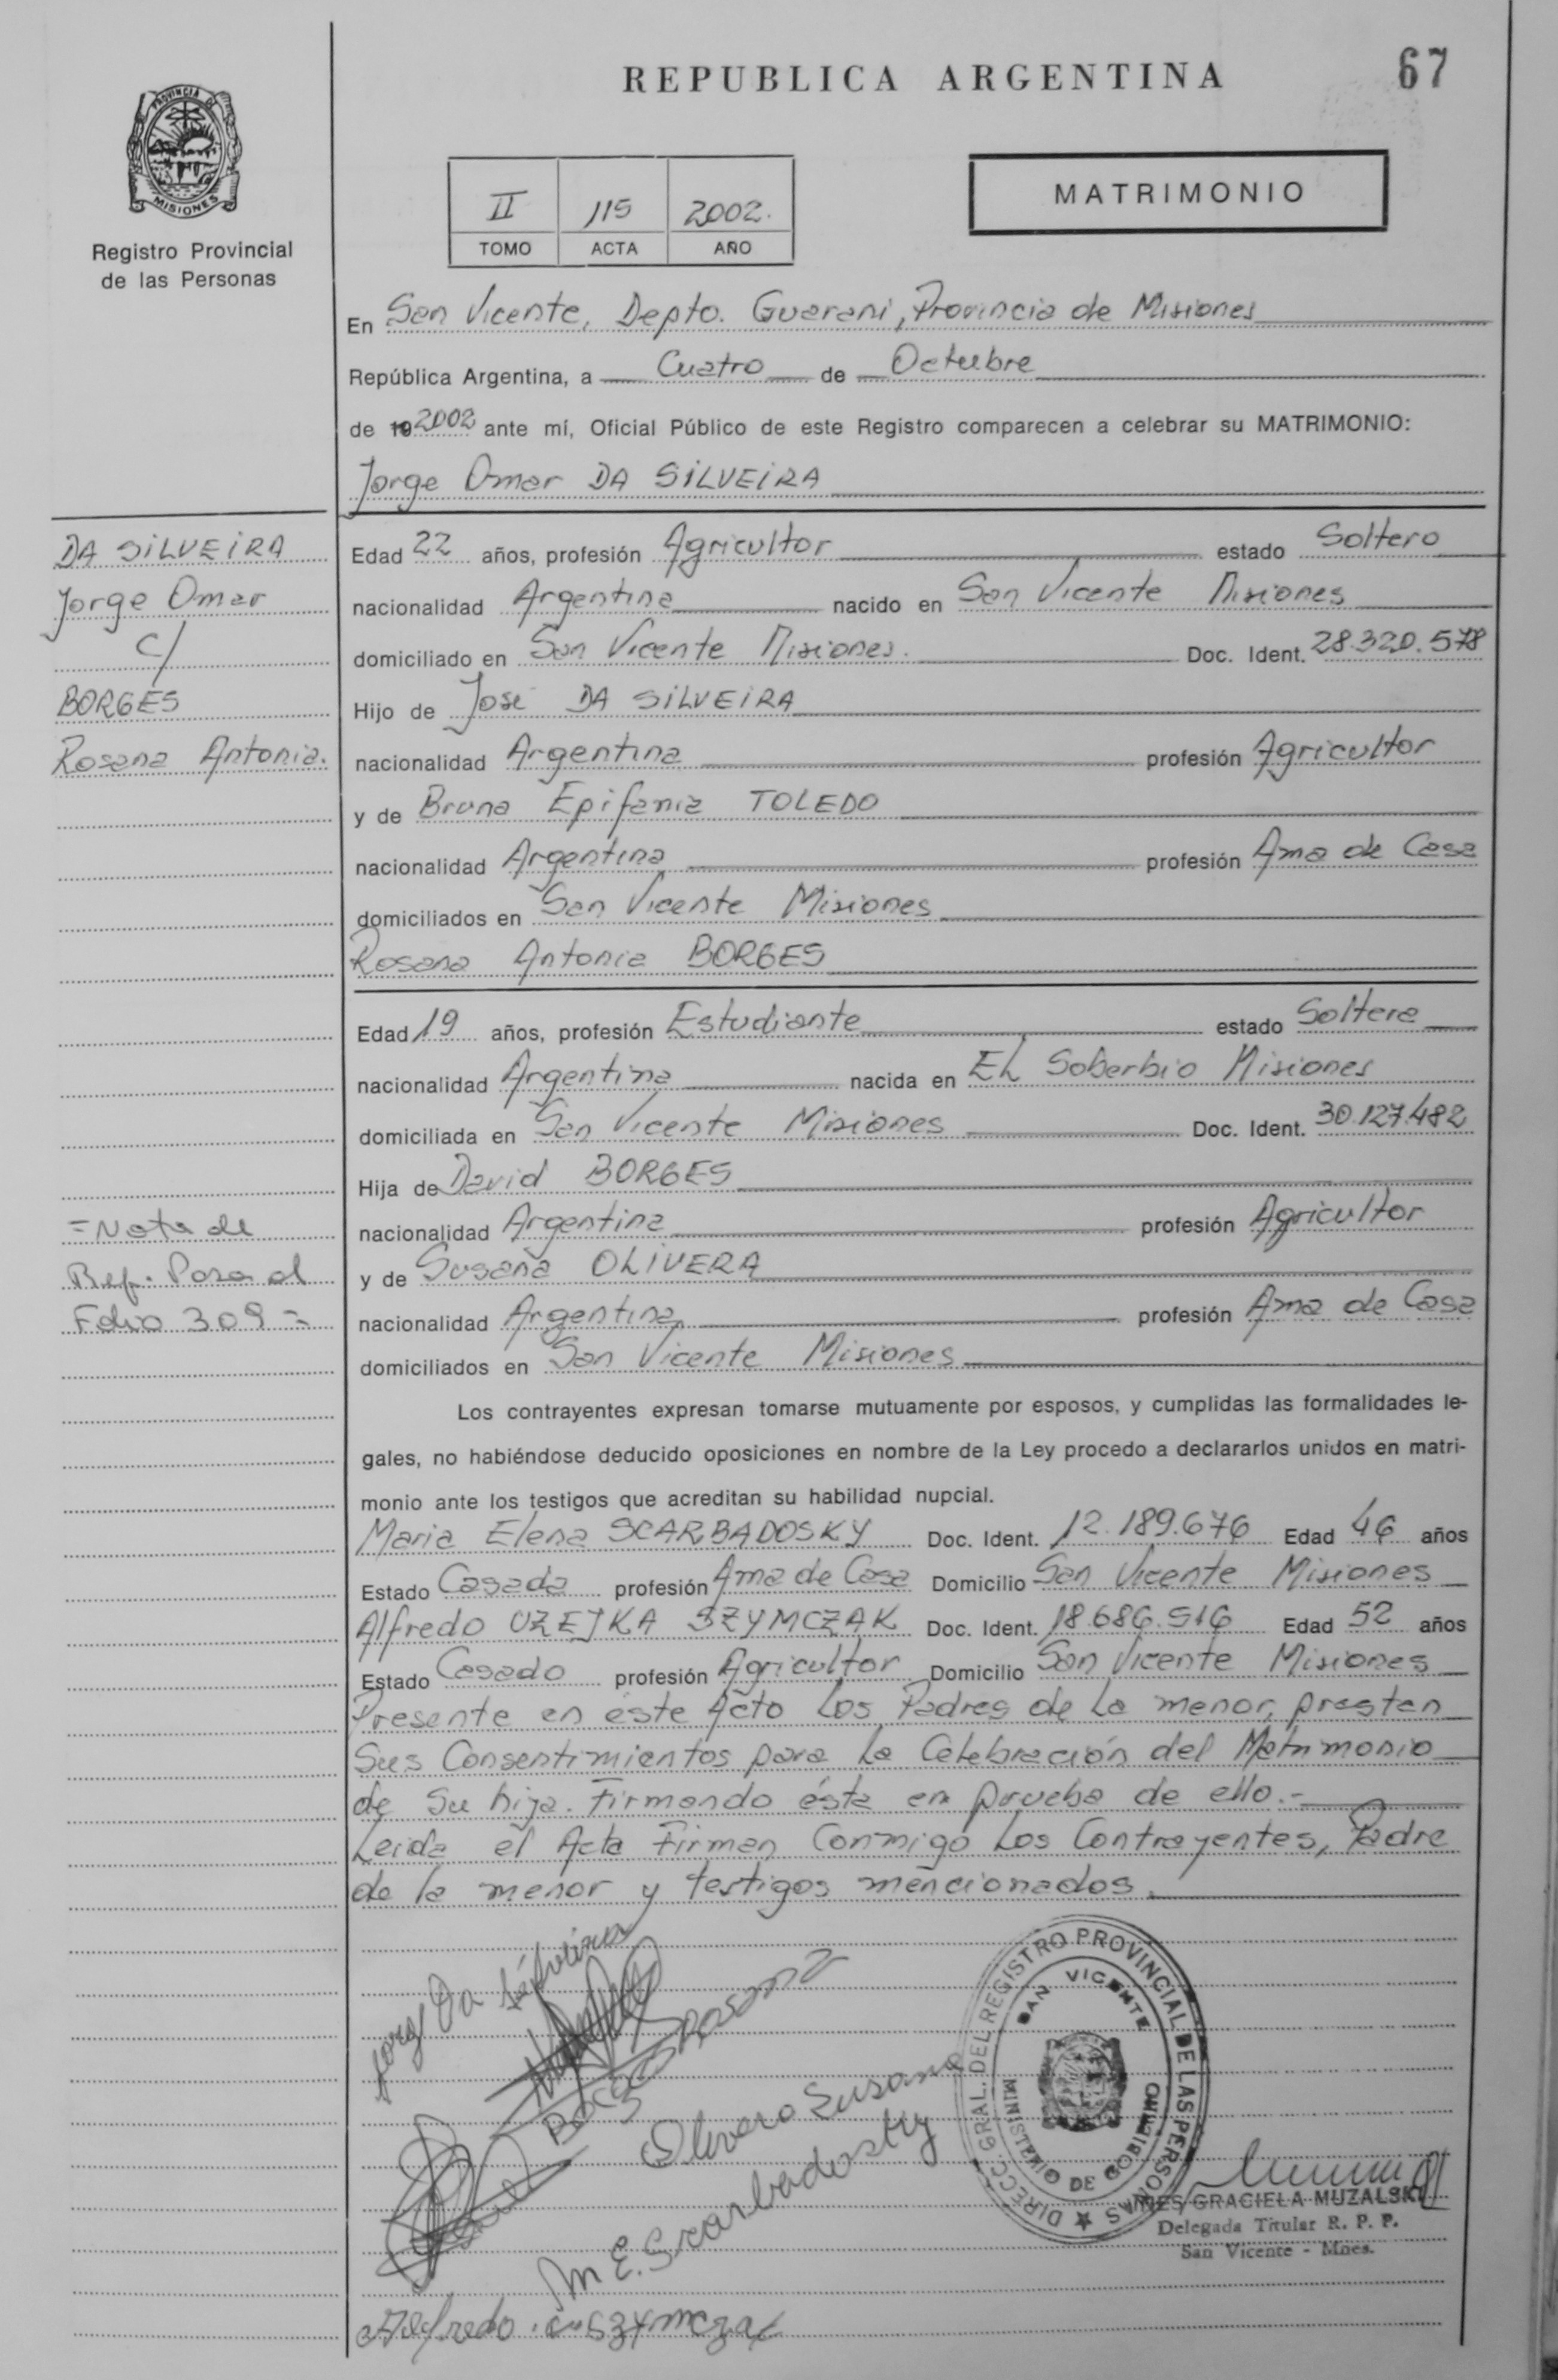 REPUBLICA ARGENTINA
67
PROVINCIA DE
MISIONES
Registro Provincial
de las Personas
II 115 2002.
TOMO ACTA AÑO
MATRIMONIO
En San Vicente, Depto. Guarani, Provincia de Misiones
República Argentina, a Cuatro de Octubre
de 19 2002 ante mí, Oficial Público de este Registro comparecen a celebrar su MATRIMONIO:
Jorge Omar DA SILVEIRA
DA SILVEIRA
Jorge Omar
c/
BORGES
Rosana Antonia.
Edad 22 años, profesión Agricultor estado Soltero
nacionalidad Argentina nacido en San Vicente Misiones
domiciliado en San Vicente Misiones. Doc. Ident. 28.320.578
Hijo de José DA SILVEIRA
nacionalidad Argentina profesión Agricultor
y de Bruna Epifania TOLEDO
nacionalidad Argentina profesión Ama de Casa
domiciliados en San Vicente Misiones
Rosana Antonia BORGES
Edad 19 años, profesión Estudiante estado Soltera
nacionalidad Argentina nacida en EL Soberbio Misiones
domiciliada en San Vicente Misiones Doc. Ident. 30.127.482
Hija de David BORGES
nacionalidad Argentina profesión Agricultor
y de Susana OLIVERA
nacionalidad Argentina profesión Ama de Casa
domiciliados en San Vicente Misiones
= Nota de
Ref. Pasa al
Folio 309 =
Los contrayentes expresan tomarse mutuamente por esposos, y cumplidas las formalidades le-
gales, no habiéndose deducido oposiciones en nombre de la Ley procedo a declararlos unidos en matri-
monio ante los testigos que acreditan su habilidad nupcial.
Maria Elena SCARBADOSKY Doc. Ident. 12.189.676 Edad 46 años
Estado Casada profesión Ama de Casa Domicilio San Vicente Misiones
Alfredo UZEJKA SZYMCZAK Doc. Ident. 18.686.516 Edad 52 años
Estado Casado profesión Agricultor Domicilio San Vicente Misiones
Presente en éste Acto Los Padres de La menor, prestan
Sus Consentimientos para La Celebración del Matrimonio
de Su hija. Firmando ésta en prueba de ello.-
Leida el Acta Firman Conmigo Los Contrayentes, Padre
de la menor y testigos mencionados.
Jorge Da Silveira
Borges Rosana
Olivera Susana
M E. Scarbadosky
Alfredo SZYMCZAK
DIRECC. GRAL. DEL REGISTRO PROVINCIAL DE LAS PERSONAS
SAN VICENTE
MINISTERIO DE GOBIERNO
INES GRACIELA MUZALSKI
Delegada Titular R. P. P.
San Vicente - Mnes.